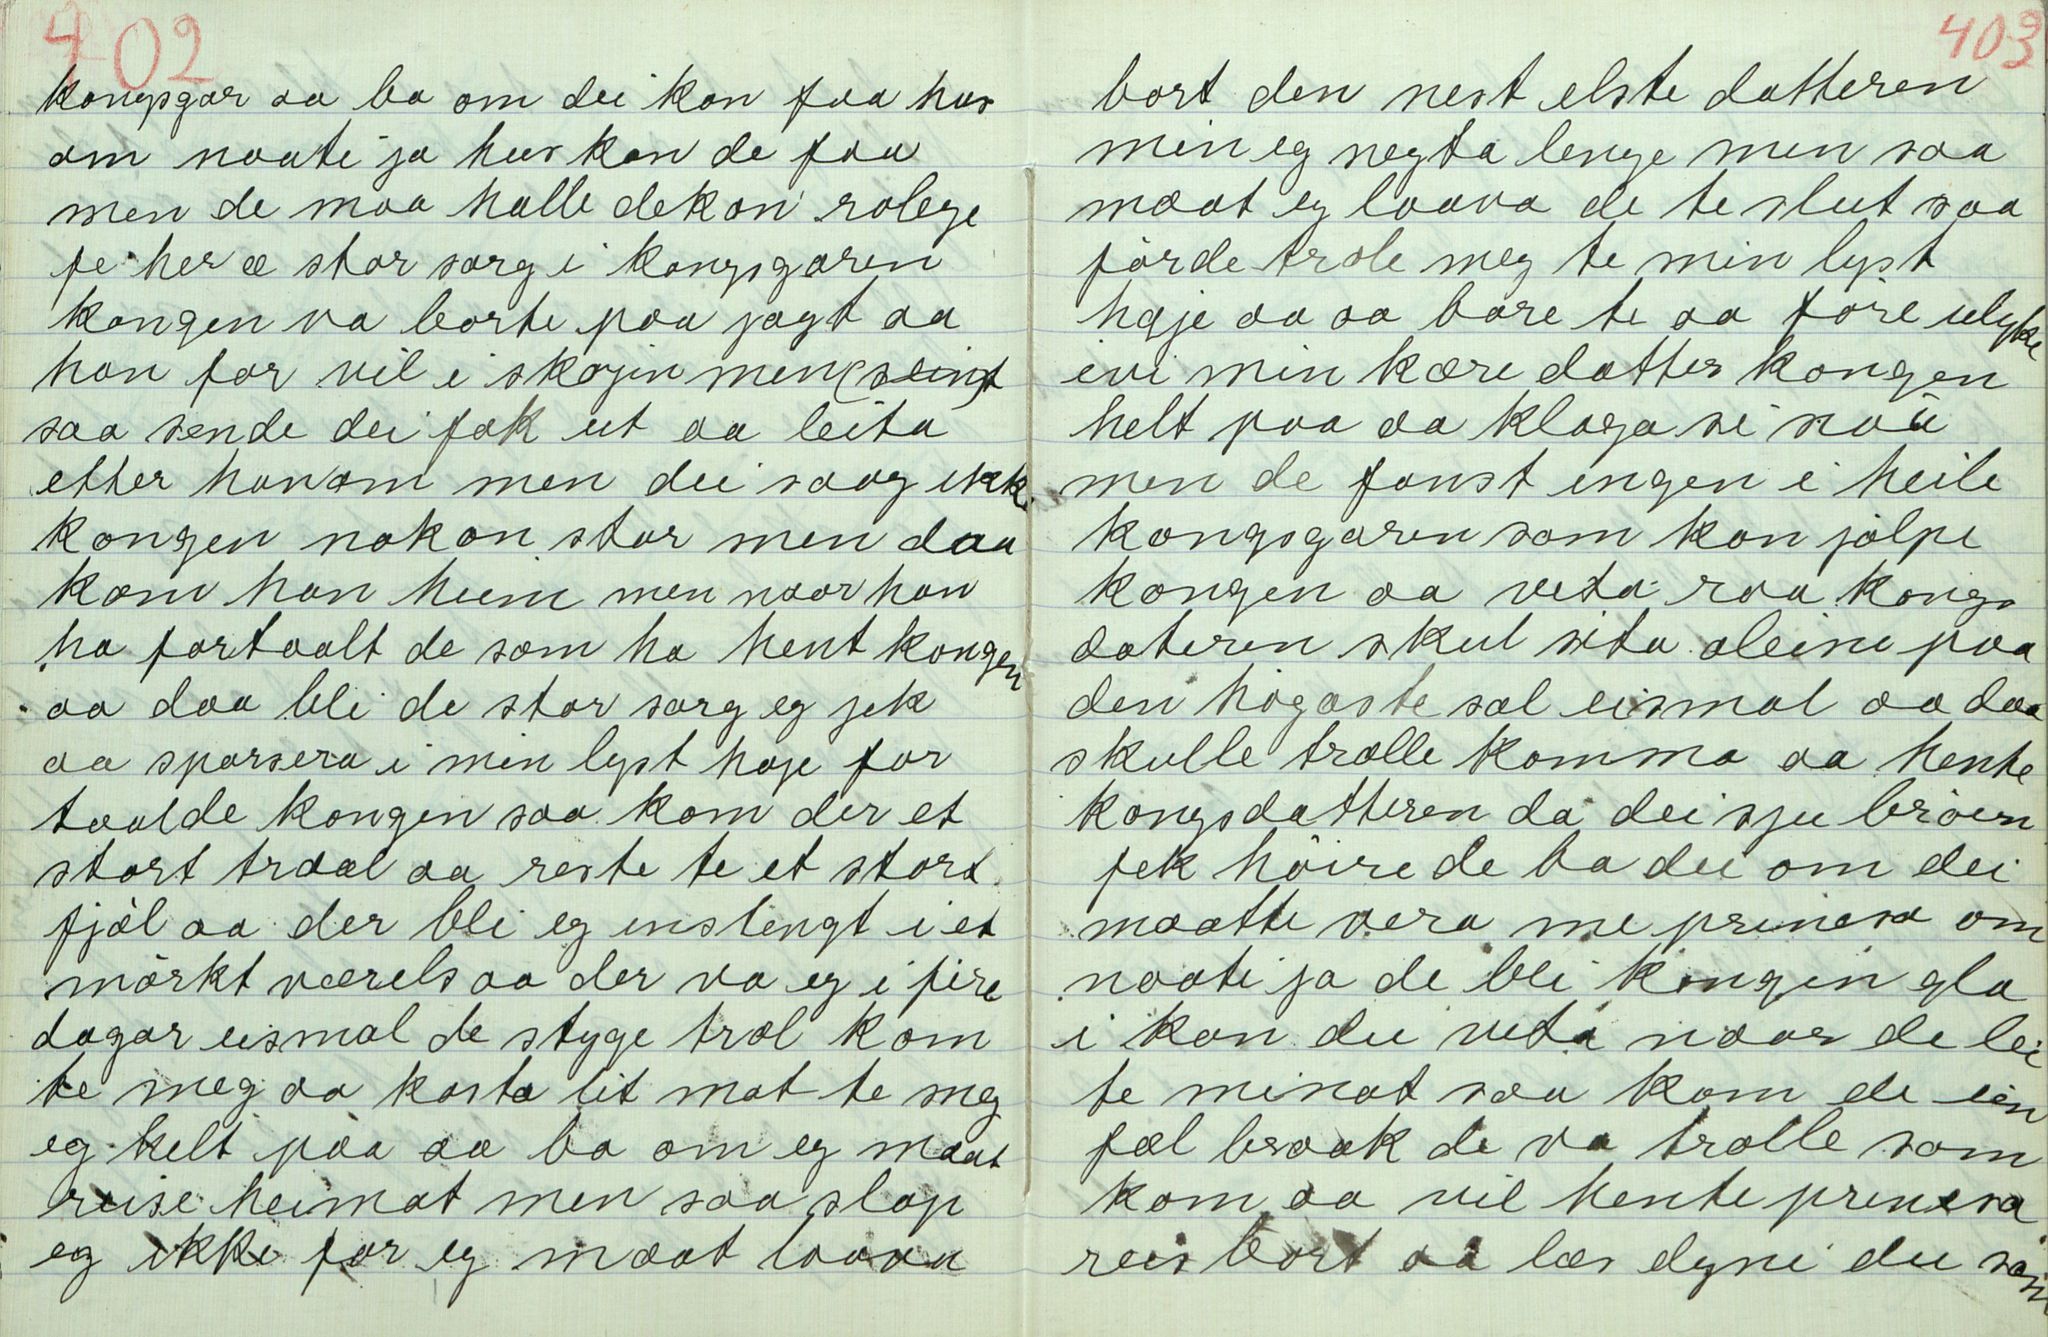 402
kongsgar aa ba om dei kan faa hus
om naati ja hus kan de faa
men de maa halle dekan rolege
fe her æ stor sorg i kongsgaren
kongen va borte paa jagt aa
han for vil i skogin men (seint
saa sende dei fok ut aa leita
etter honom men dei saag ikke
kongen nokon star men daa
kom han heim men naar han
ha fortaalt de som ha hent kongen
aa daa blei de stor sorg eg jek
aa sparsera i min lyst haje for
taalde kongen saa kom der et
stort traal aa reste te et stort
fjøl aa der blei eg inslengt i et
mørkt værels aa der va eg i fire
dagar eismal de styge trol kom
te meg aa kasta lit mat te meg
eg helt paa aa ba om eg maat
reise heimat men saa slap
eg ikke for eg maat laava
403
bort den nest elste datteren
min eg negta lenge men saa
maat eg laava de te slut saa
förde trole meg te min lyst
haje aa aa bare te aa före ulyke
ivi min kære datter kongen
helt paa aa klaga si naú
men de fanst ingen i heile
kongsgaren som kan jølpe
kongen aa veta raa kongs
dateren skul sita aleine paa
den högaste sal eismal aa daa
skulle trolle komma aa hente
kongsdatteren da dei sju bröern
fek höire de ba dei om dei
maatte vera me prinesa om
naati ja de blei kongen gla
i kan du veta naar de lei
te minat saa kom de ein
fæl braak de va trolle som
kom aa vil hente prinesa
reis bort aa læs dyni du